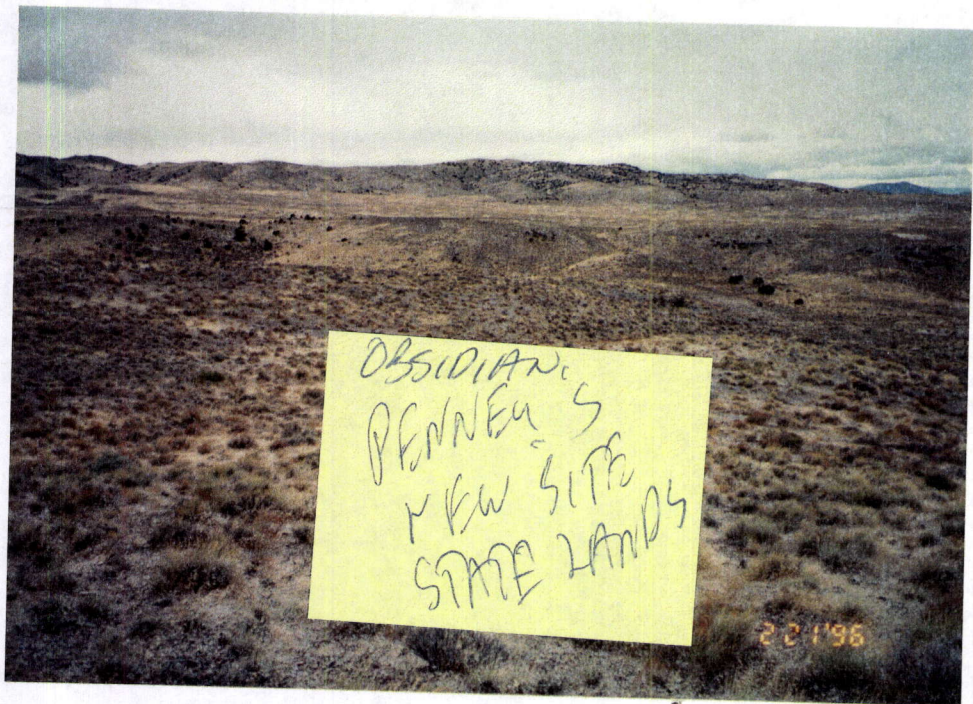 OBSIDIAN.
PENNEY'S
NEW SITE
STATE LANDS
2 21'96